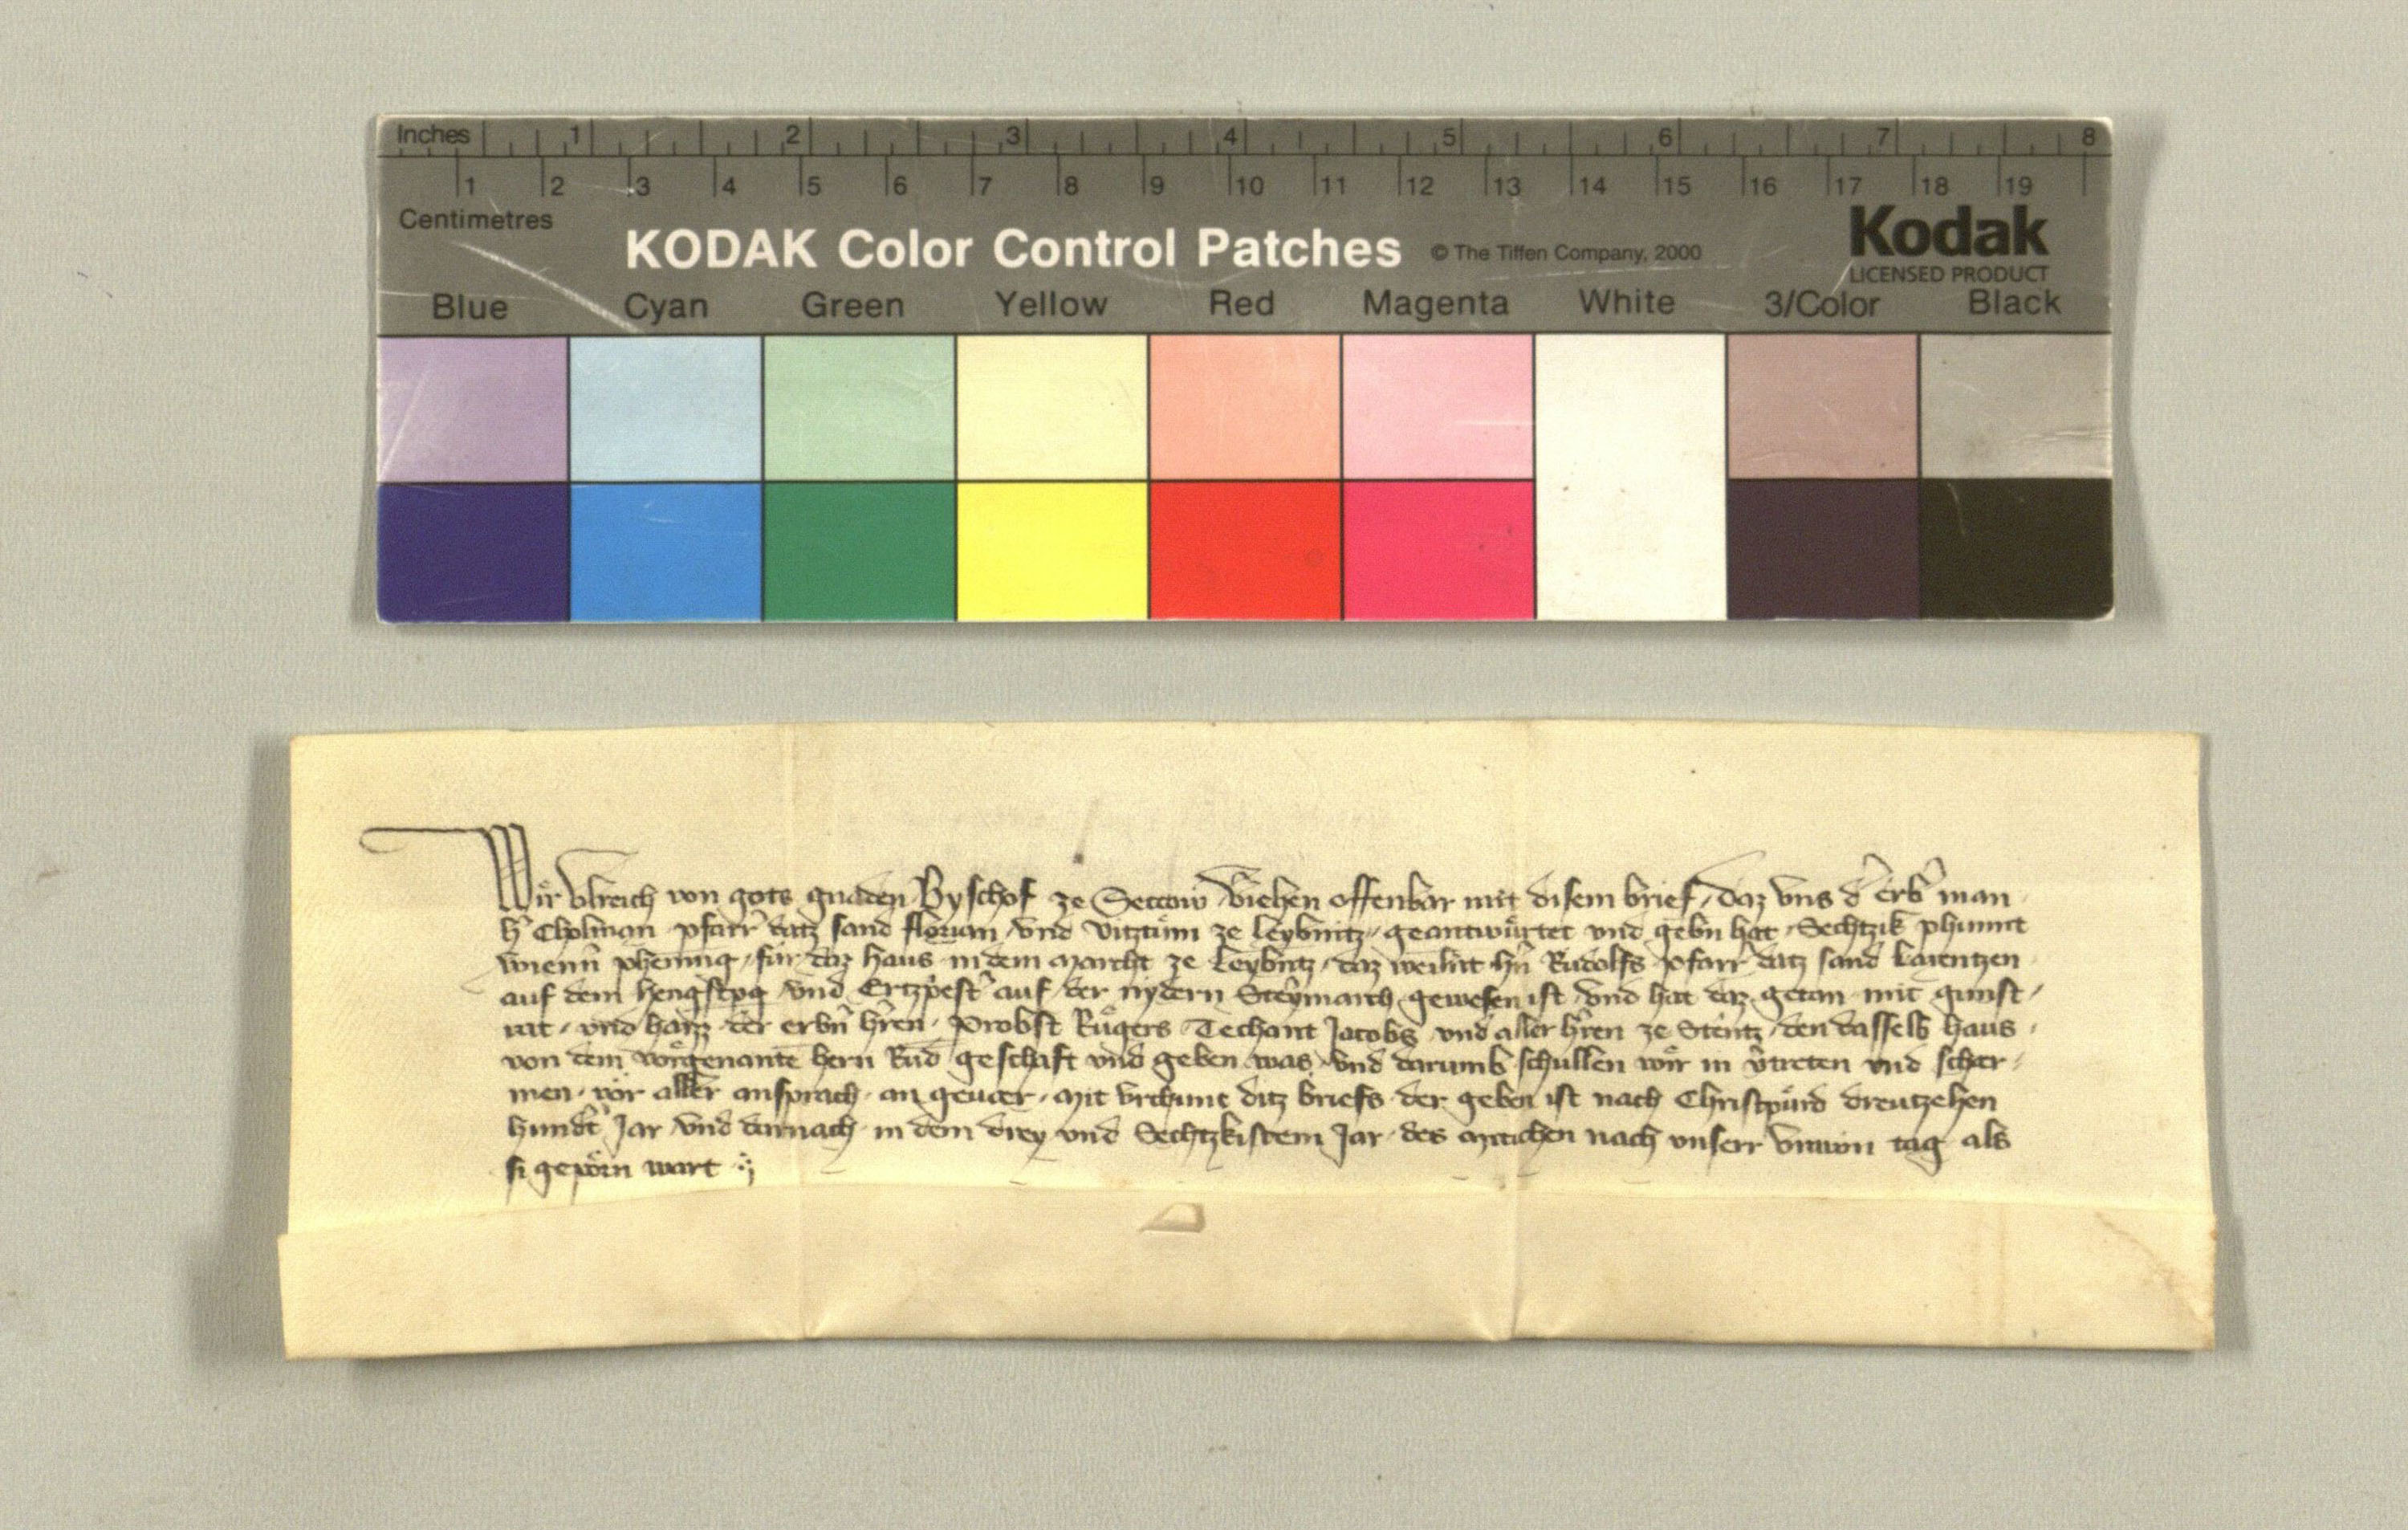 Inches 1 2 3 4 5 6 7 8
1 2 3 4 5 6 7 8 9 10 11 12 13 14 15 16 17 18 19
Centimetres
KODAK Color Control Patches © The Tiffen Company, 2000 Kodak
LICENSED PRODUCT
Blue Cyan Green Yellow Red Magenta White 3/Color Black
Wir Vlreich von gots gnaden Byschof ze Seccow v̂iehen offenbar mit disem brief, daz vns d̂ erb̂ man
ĥ Cholman pfarr̂ datz sand florian vnd vitztům ze Leybnitz, geantwürtet vnd gebn hat, Sechtzik phunnt
wienn̂ phenning, für daz haus in dem Marcht ze Leybntz, daz weilnt hn̂ Rudolfs pfarr̂ datz sand Larentzen
auf dem hengstpg vnd Ertzp̂est̂ auf der nydern Steymarch gewesen ist, vnd hat daz getan mit gunst,
rat, vnd haizz der erbn̂ ĥren, Probst Růgers Techant Jacobs vnd aller ĥren ze Stentz, den dasselb haus,
von dem vorgenantē hern Rud̄ geschaft vnd geben was, vnd darumb schullen wir in v̂treten vnd scher,
men, vor aller ansprach, an geuer, Mit vrchunt ditz briefs, der geben ist nach Christpůrd dreutzehen
hundt̂ Jar vnd darnach in dem drey vnd Sechtzkistem Jar, des Mitichen nach vnserr vrawn tag als
si geporn wart